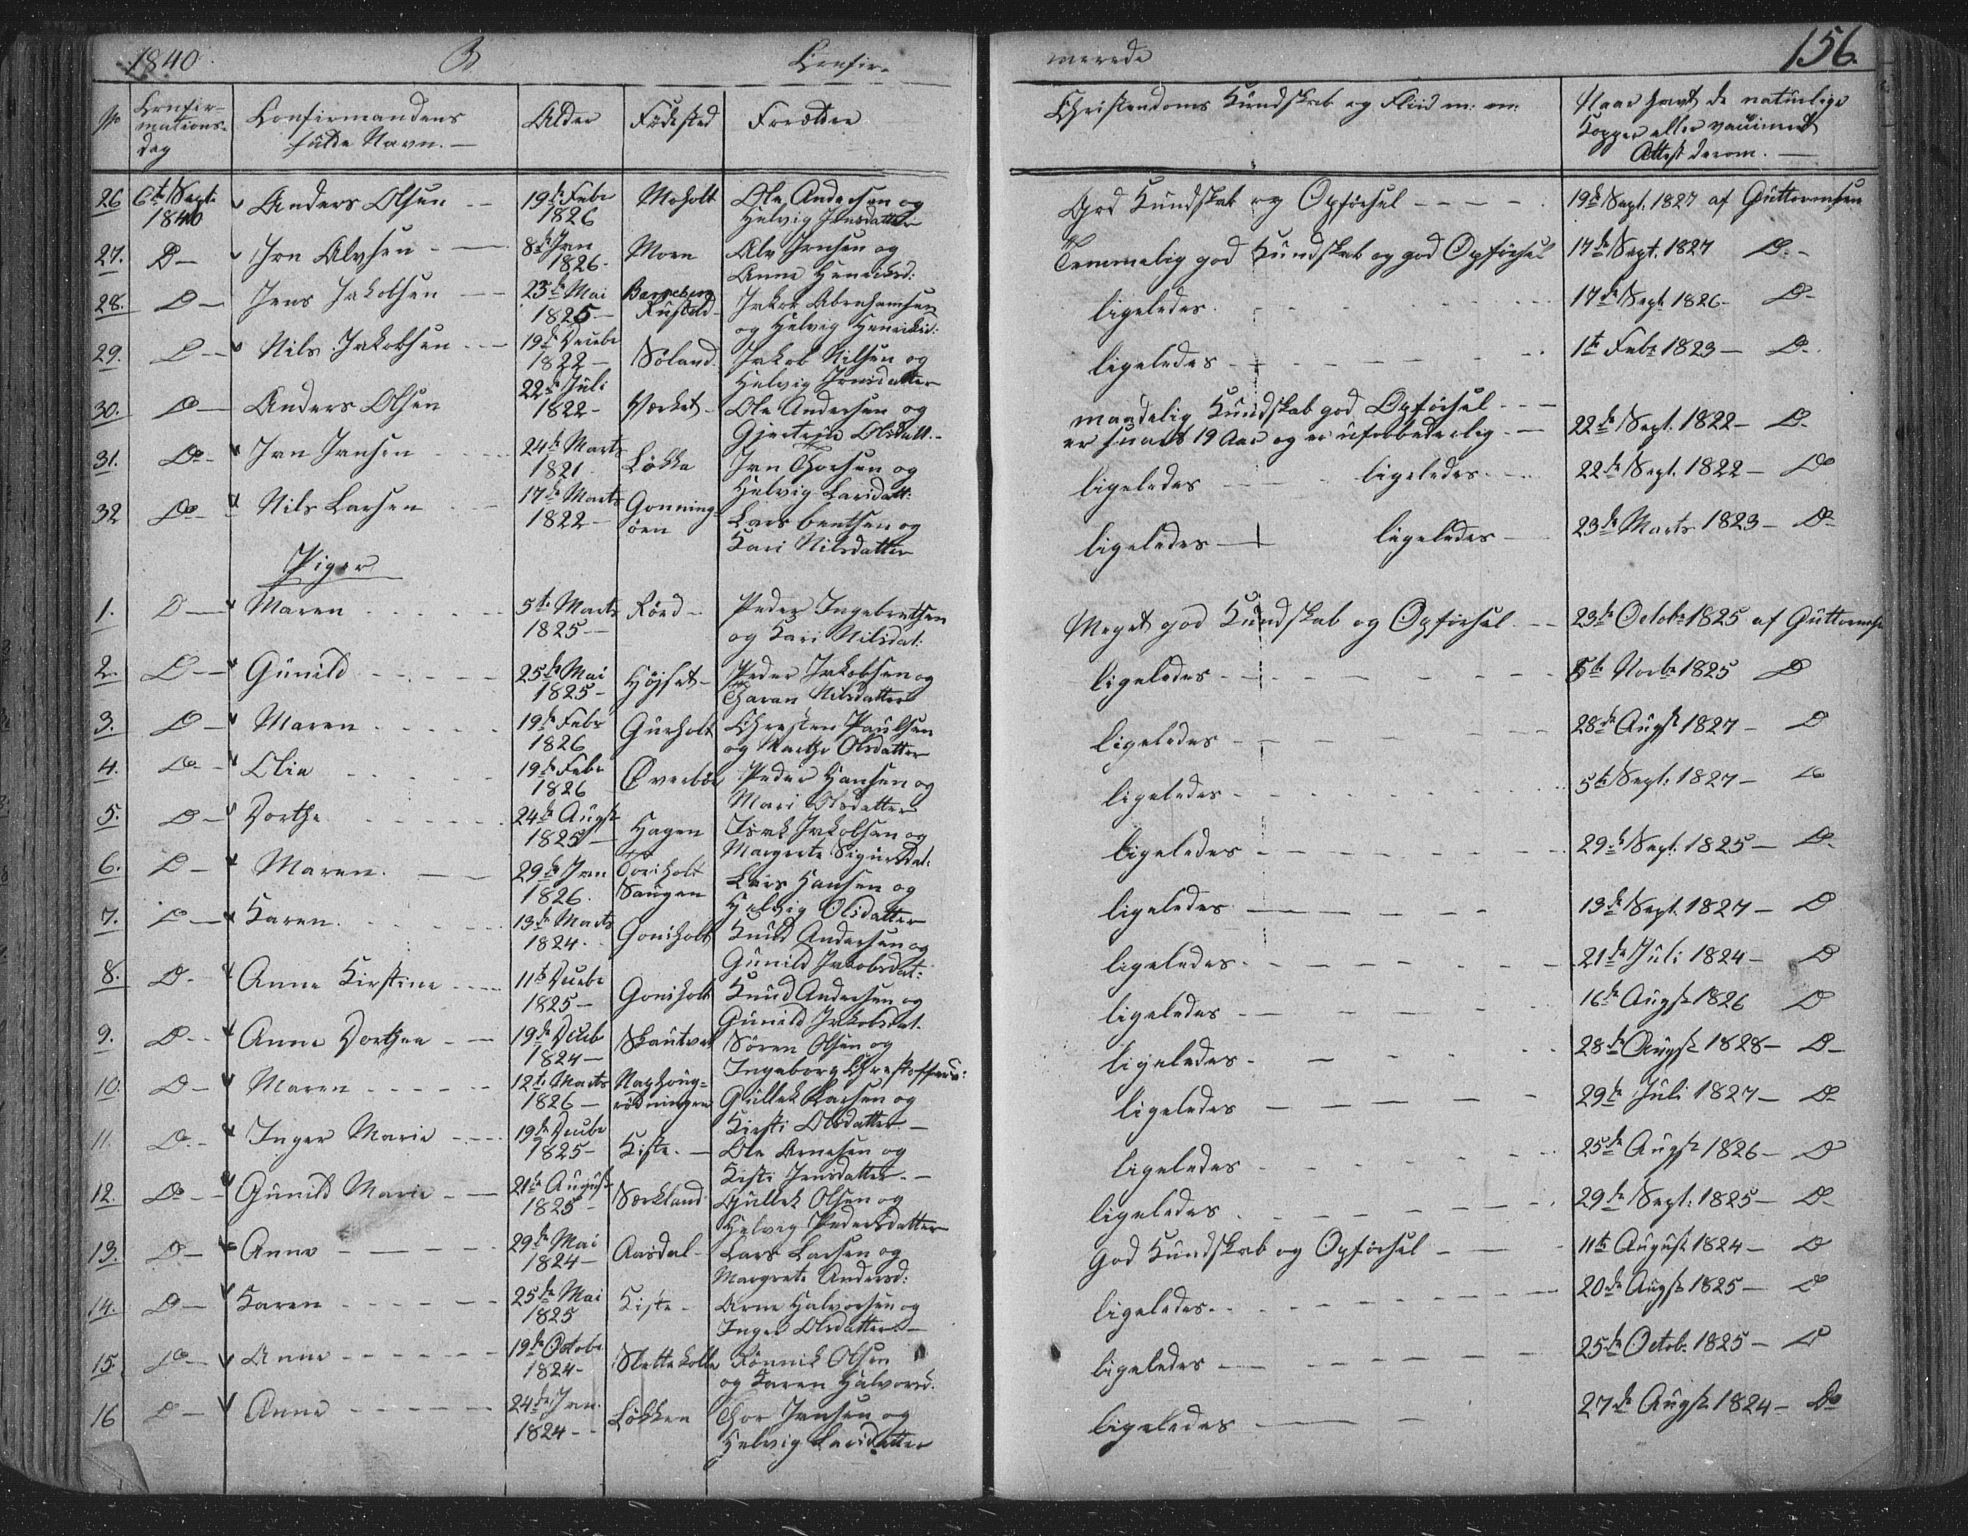 1840. B Confir- merede 156.
No Confir- mations- dag Confirmandens fulde Navn. Alder Fødested Forældre Christendoms Kundskab og Fliid m: m: Naar havt de naturlige Kopper eller vaccineret Attest derom.
26 6te Sept: 1840 Anders Olsen 19de Febr 1826 Moholt Ole Andersen og Helvig Jensdatter God Kundskab og Opførsel 19de Sept. 1827 af Guttormsen
27. Do Jon Alvsen 8de Jan 1826. Moen Alv Jensen og Anne Henriksd: Temmelig god Kundskab og god Opførsel 17de Sept. 1827 Do
28. Do Jens Jakobsen 23de Mai 1825 Jakob Abrahamsen og Helvig Henriksd: ligeledes 17de Sept 1826 Do
29. Do Nils Jakobsen 19de Decbr 1822 Søland Jakob Nilsen og Helvig Jensdatter ligeledes 1te Febr 1823 Do
30. Do Anders Olsen 22de Juli 1822 Værket Ole Andersen og Olsdatt. maadelig Kundskab god Opførsel er snart 19 Aar og er uforbederlig 22de Sept. 1822 Do
31. Do Jan Jansen 24de Marts 1821 Løkka Jan Thorsen og Helvig Larsdatt: ligeledes ligeledes 22de Sept. 1822 Do
32 Do Nils Larsen 17de Marts 1822 Gonning- øen Lars bentsen og Kari Nilsdatter ligeledes ligeledes 23de Marts 1823 Do
Piger
1. Do Maren 5te Marts 1825 Rørd Peder Ingebretsen og Kari Nilsdat. Meget god Kundskab og Opførsel 23de Octobr 1825 af Guttormsen
2. Do Gunild 25de Mai 1825 Højset Peder Jakobsen og Taran Nilsdatter ligeledes 5te Novbr 1825 Do
3. Do Maren 19de Febr 1826 Gurholt Christen Paulsen og Marthe Olsdatter ligeledes 28de Augst 1827 Do
4. Do Elie 19de Febr 1826 Overbøe Peder Hansen og Mari Olsdatter ligeledes 5te Sept. 1827 Do
5. Do Dorthe 24de Augst 1825 Hagen Isak Jakobsen og Margrete Sigurdsdat: ligeledes 29de Sept. 1825 Do
6. Do Maren 29de Jan 1826. Toriholt Saugen Lars Hansen og Helvig Olsdatter ligeledes 13de Sept. 1827 Do
7. Do Karen 13de Marts 1824. Goniholt Knud Andersen og Gunild Jakobsdat: ligeledes 21de Juli 1824 Do
8. Do Anne Kirstine 11te Decbr 1825 Goniholt Knud Andersen og Gunild Jakobsdat. ligeledes 16de Augst 1826 Do
9. Do Anne Dorthea 19de Decb 1824 Skautvet Søren Olsen og Ingeborg Christoffersd: ligeledes 28de Augst 1828 Do
10. Do Maren 12te Marts 1826 Naphoug- rødningen Gullek Larsen og Kirsti Olsdatter ligeledes 29de Juli 1827 Do
11. Do Inger Marie 19de Decbr 1825 Kiste. Ole Arnesen og Kisti Jensdatter ligeledes 25de Augst 1826 Do
12. Do Gunild Marie 21de August 1825 Værkland Gullek Olsen og Helvig Pedersdatter ligeledes 29de Sept: 1825 Do
13. Do Anne 29de Mai 1824 Aasdal Lars Larsen og Margrete Andersd: God Kundskab og Opførsel 11te August 1824 Do
14. Do Karen 25de Mai 1825 Kiste Arne Halvorsen og Inger Olsdatter ligeledes 20de Augst 1825 Do
15. Do Anne 19de Octobr 1824 Slettekolle Rønnik Olsen og Karen Halvorsd. ligeledes 25de Octob. 1825 Do
16 Do Anne 24de Jan. 1824 Løkken Thor Jensen og Helvig Larsdatter ligeledes 27de Augst 1824 Do